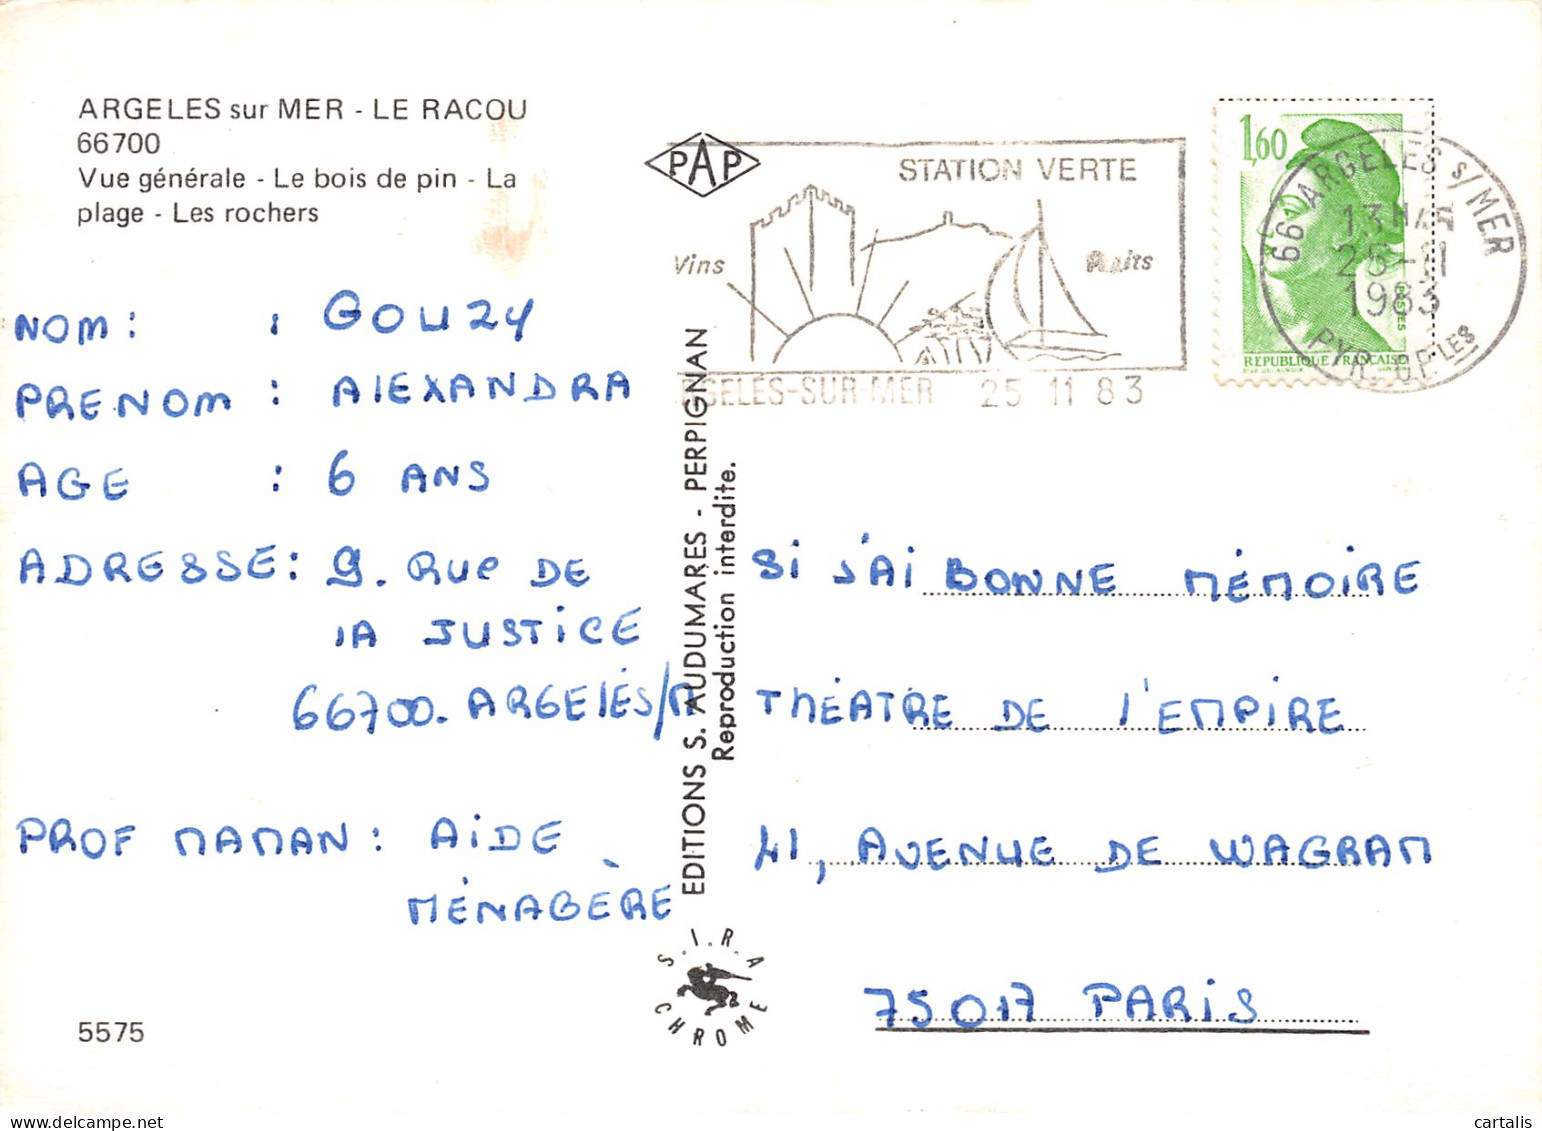 ARGELES sur MER - LE RACOU
66700
Vue générale - Le bois de pin - La
plage - Les rochers
NOM : : GOUZY
PRENOM : AlEXANDRA
AGE : 6 ANS
ADRESSE : 9. RUE DE
lA JUSTICE
66700. ARGElÉS/M
PROF MAMAN : AIDE
MÉNAGÈRE
5575
EDITIONS S. AUDUMARES - PERPIGNAN
Reproduction interdite.
S.I.R.A
CHROME
PAP
STATION VERTE
Vins
GELES-SUR-MER 25 11 83
1,60
POSTES
REPUBLIQUE FRANÇAISE
66 ARGELES S/MER
13H
25-11
1983
PYR. OR.LES
SI J'AI BONNE MÉMOIRE
THÉATRE DE l'EMPIRE
41, AVENUE DE WAGRAM
75017 PARIS
cartalis